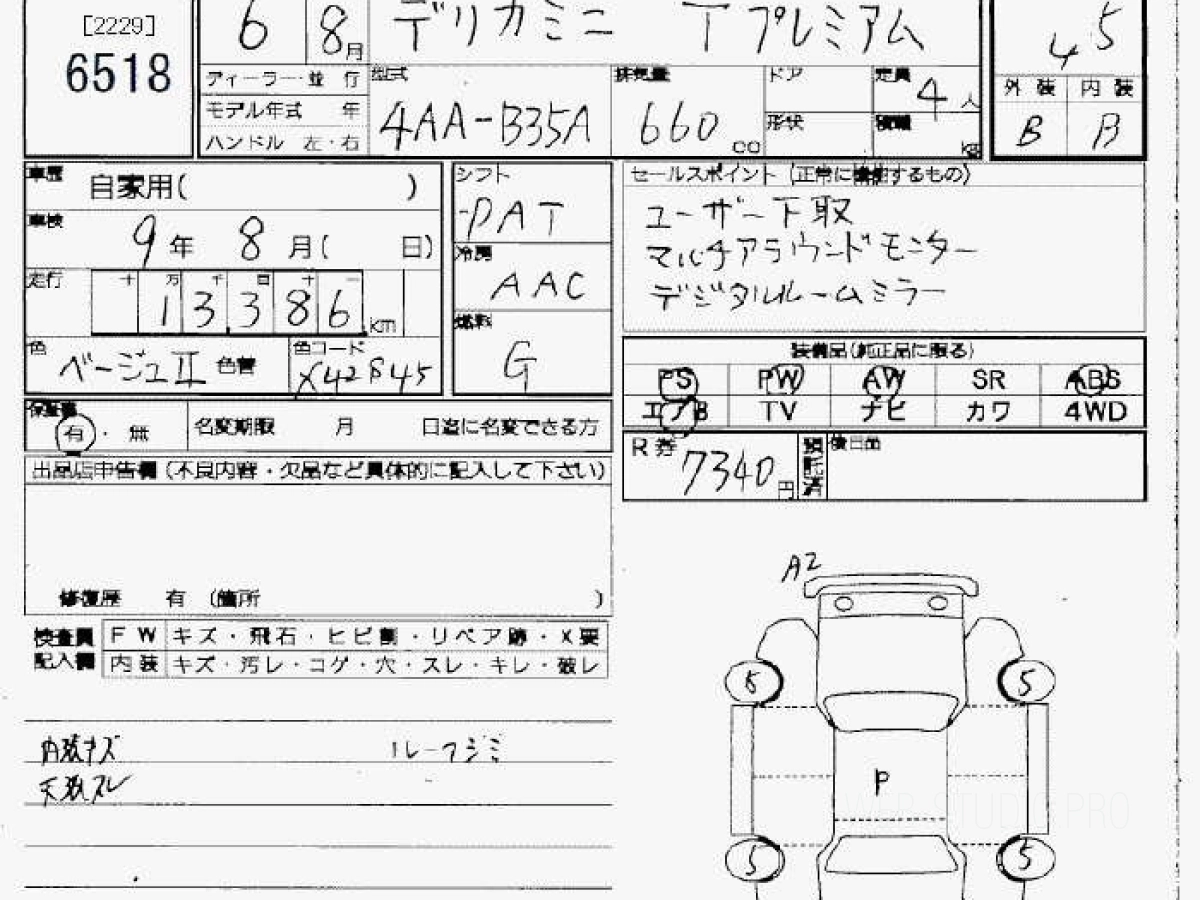 [2229]
6518
6 8月
デリカミニ Tプレミアム
45
ディーラー・並 行
モデル年式 年
ハンドル 左・右
型式
4AA-B35A
排気量
660 cc
ドア
形状
定員
4 人
積載
kg
外装 内装
B B
車歴
自家用( )
車検
9年 8月( 日)
走行
十 万 千 百 十 一
13,386 km
色
ベージュII 色替
色コード
X42 845
シフト
PAT
冷房
AAC
燃料
G
セールスポイント (正常に機能するもの)
ユーザー下取
マルチアラウンドモニター
デジタルルームミラー
装備品(純正品に限る)
PS PW AW SR ABS
エアB TV ナビ カワ 4WD
保証書
有・無
名変期限 月 日迄に名変できる方
R券
7340円
預託済
後日品
出品店申告欄(不良内容・欠品など具体的に記入して下さい)
修復歴 有 (箇所 )
検査員記入欄
FW キズ・飛石・ヒビ割・リペア跡・X要
内装 キズ・汚レ・コゲ・穴・スレ・キレ・破レ
内装キズ
天張スレ
ルーフジミ
A2
5 5
P
5 5
WEB STUDIO PRO